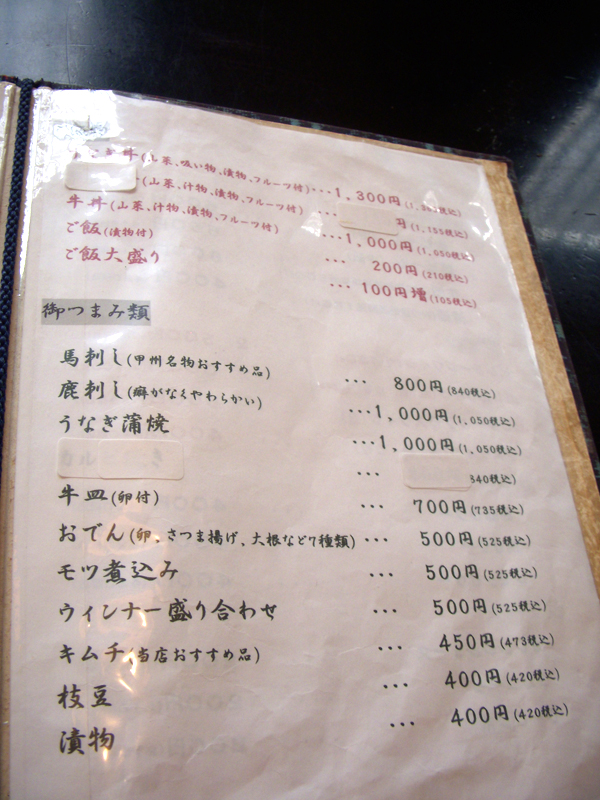 丼(山菜、吸い物、漬物、フルーツ付)…1,300円
(山菜、汁物、漬物、フルーツ付)…円(1,155税込)
牛丼(山菜、汁物、漬物、フルーツ付)…1,000円(1,050税込)
ご飯(漬物付)…200円(210税込)
ご飯大盛り…100円増(105税込)
御つまみ類
馬刺し(甲州名物おすすめ品)…800円(840税込)
鹿刺し(癖がなくやわらかい)…1,000円(1,050税込)
うなぎ蒲焼…1,000円(1,050税込)
…840税込)
牛皿(卵付)…700円(735税込)
おでん(卵、さつま揚げ、大根など7種類)…500円(525税込)
モツ煮込み…500円(525税込)
ウィンナー盛り合わせ…500円(525税込)
キムチ(当店おすすめ品)…450円(473税込)
枝豆…400円(420税込)
漬物…400円(420税込)